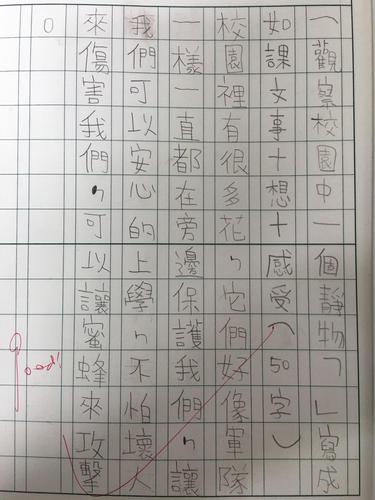 （觀察校園中一個靜物「」寫成
如課文事+想+感受（50字）
校園裡有很多花，它們好像軍隊
一樣一直都在旁邊保護我們，讓
我們可以安心的上學，不怕壞人
來傷害我們，可以讓蜜蜂來攻擊
。
Good!